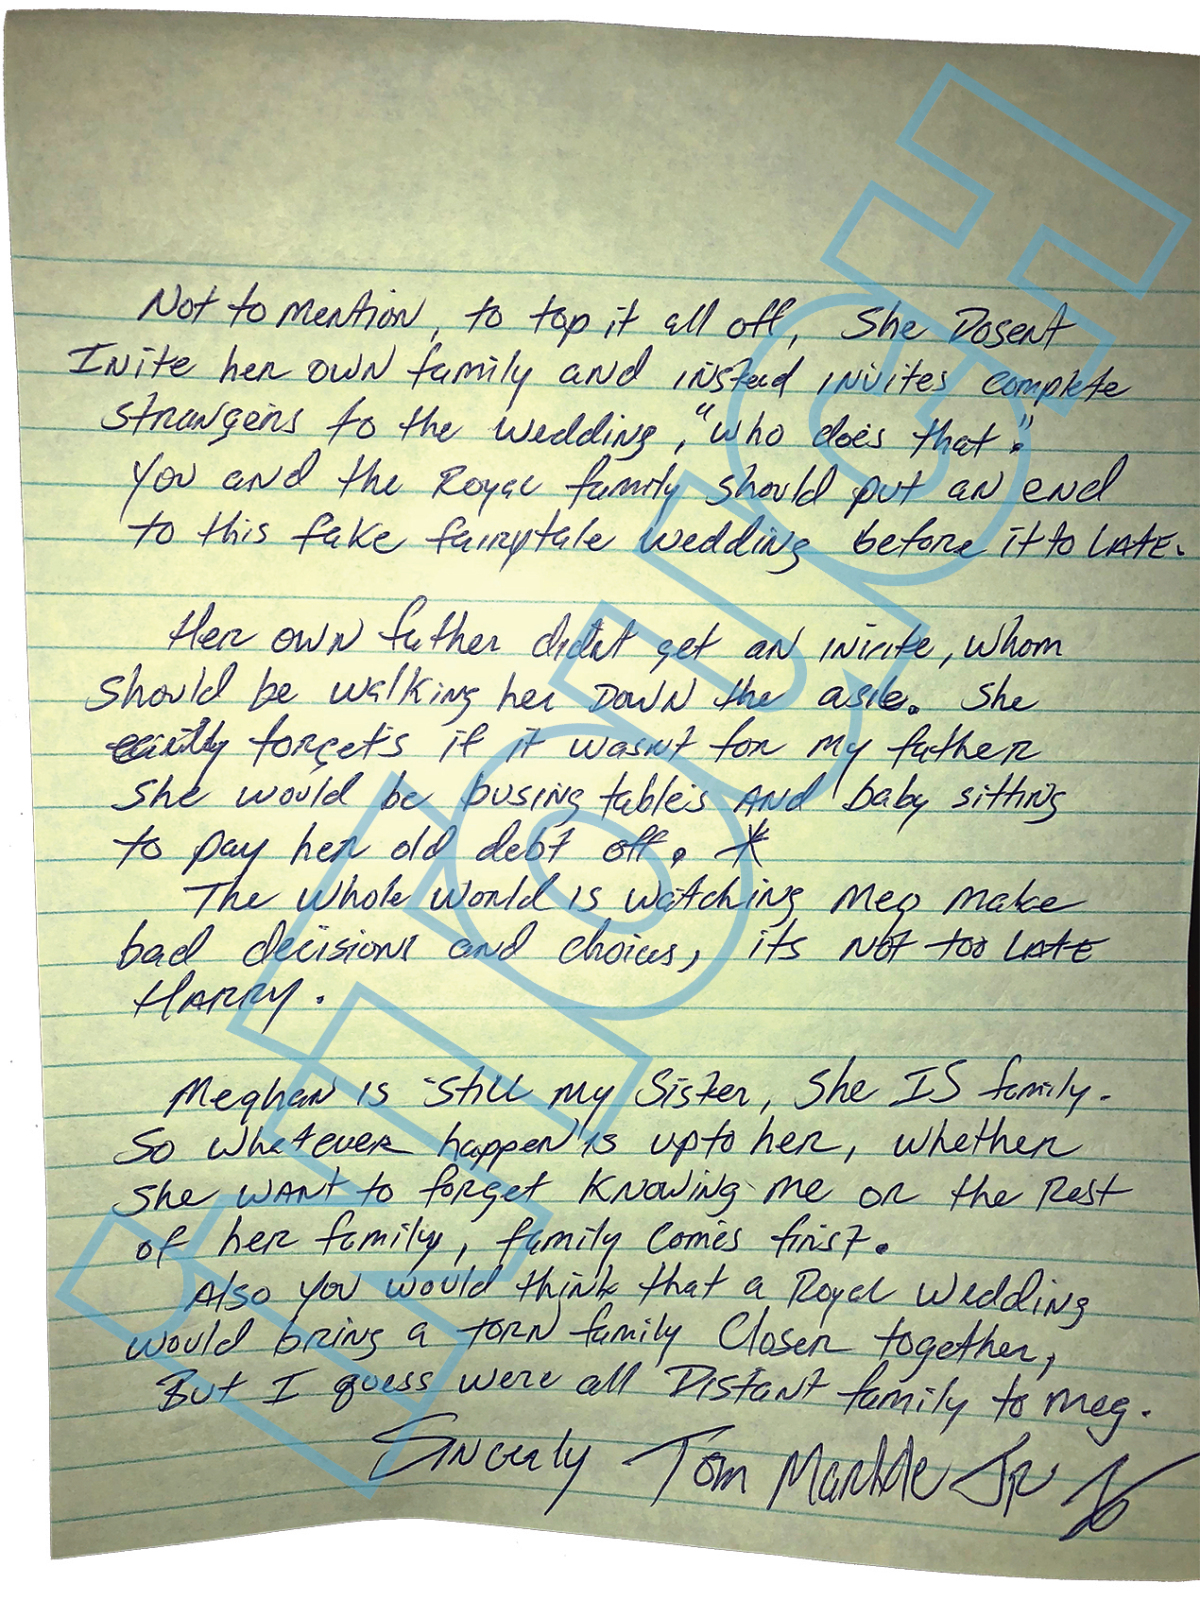 Not to mention, to top it all off, She Dosent
Inite her own family and instead invites complete
strangers to the wedding, "who does that".
You and the Royal family should put an end
to this fake fairytale wedding before it to LATE.
Her own father didnt get an invite, whom
should be walking her Down the asile. She
forgets if it wasnt for my father
she would be busing tables AND baby sitting
to pay her old debt off. *
The whole world is watching Meg make
bad decisions and choices, its NOT too LATE
HARRY.
Meghan is still my Sister, She IS family.
So whatever happen's is upto her, whether
she want to forget Knowing me or the Rest
of her family, family comes first.
Also you would think that a Royal wedding
would bring a TORN family Closer together,
But I guess were all Distant family to meg.
Sincerly Tom Markle Jr
INTOUCH